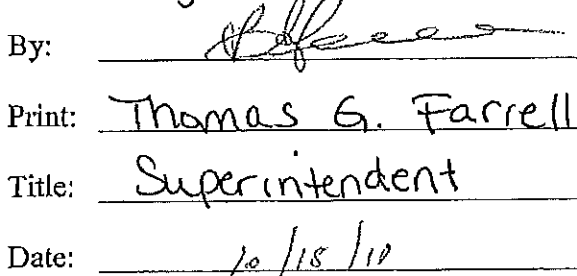 By:
Print: Thomas G. Farrell
Title: Superintendent
Date: 10/15/10